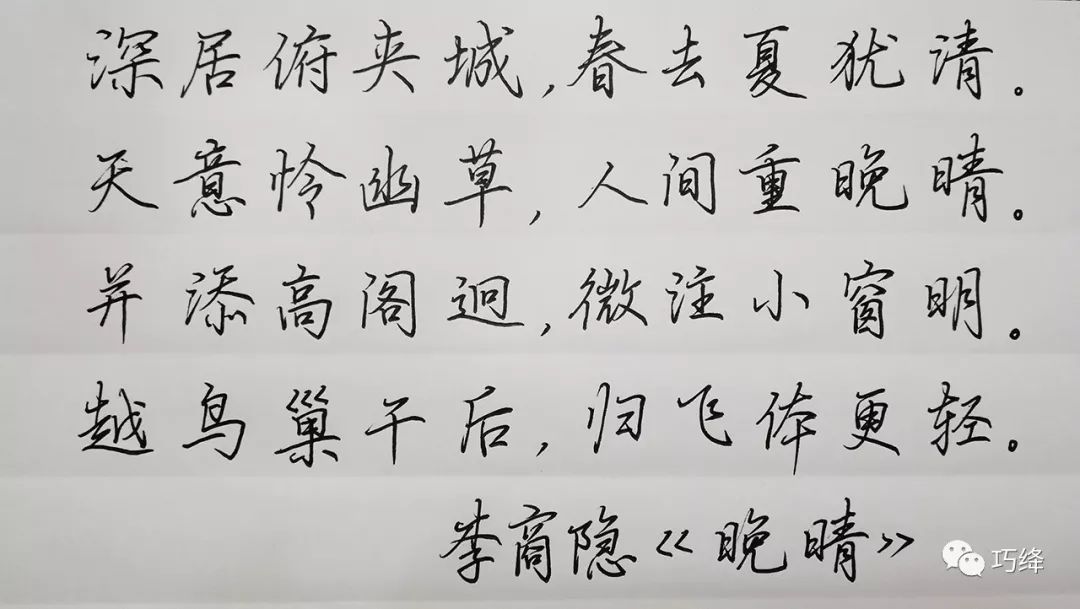 深居俯夹城,春去夏犹清。
天意怜幽草,人间重晚晴。
并添高阁迥,微注小窗明。
越鸟巢干后,归飞体更轻。
李商隐《晚晴》
巧绛